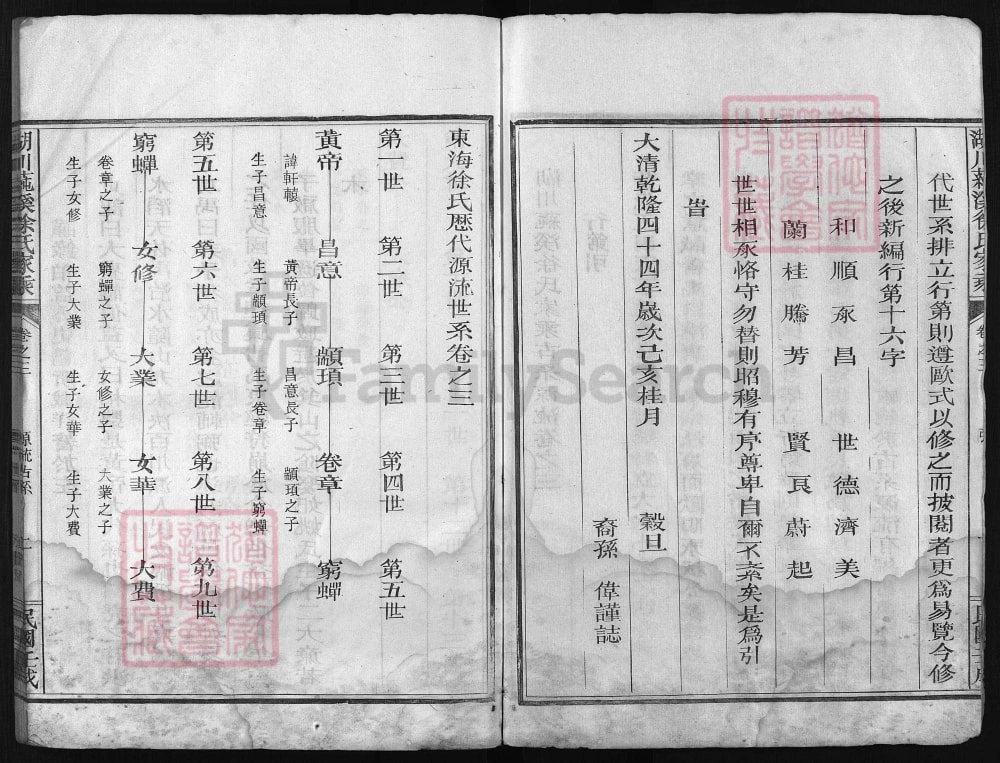 代世系排立行第則遵歐式以修之而披閱者更為易覽今修
之後新編行第十六字
和順承昌 世德濟美
蘭桂騰芳 賢良蔚起
世世相承恪守勿替則昭穆有序尊卑自爾不紊矣是為引
旹
大清乾隆四十四年歲次己亥桂月 穀旦
裔孫 偉謹誌
東海徐氏歷代源流世系卷之三
第一世 第二世 第三世 第四世 第五世
黃帝 昌意 顓頊 卷章 窮蟬
諱軒轅 黃帝長子 昌意長子 顓頊之子
生子昌意 生子顓頊 生子卷章 生子窮蟬
第五世 第六世 第七世 第八世 第九世
窮蟬 女修 大業 女華 大費
卷章之子 窮蟬之子 女修之子 大業之子
生子女修 生子大業 生子女華 生子大費
徐氏家乘 卷之三
民國壬戌
FamilySearch